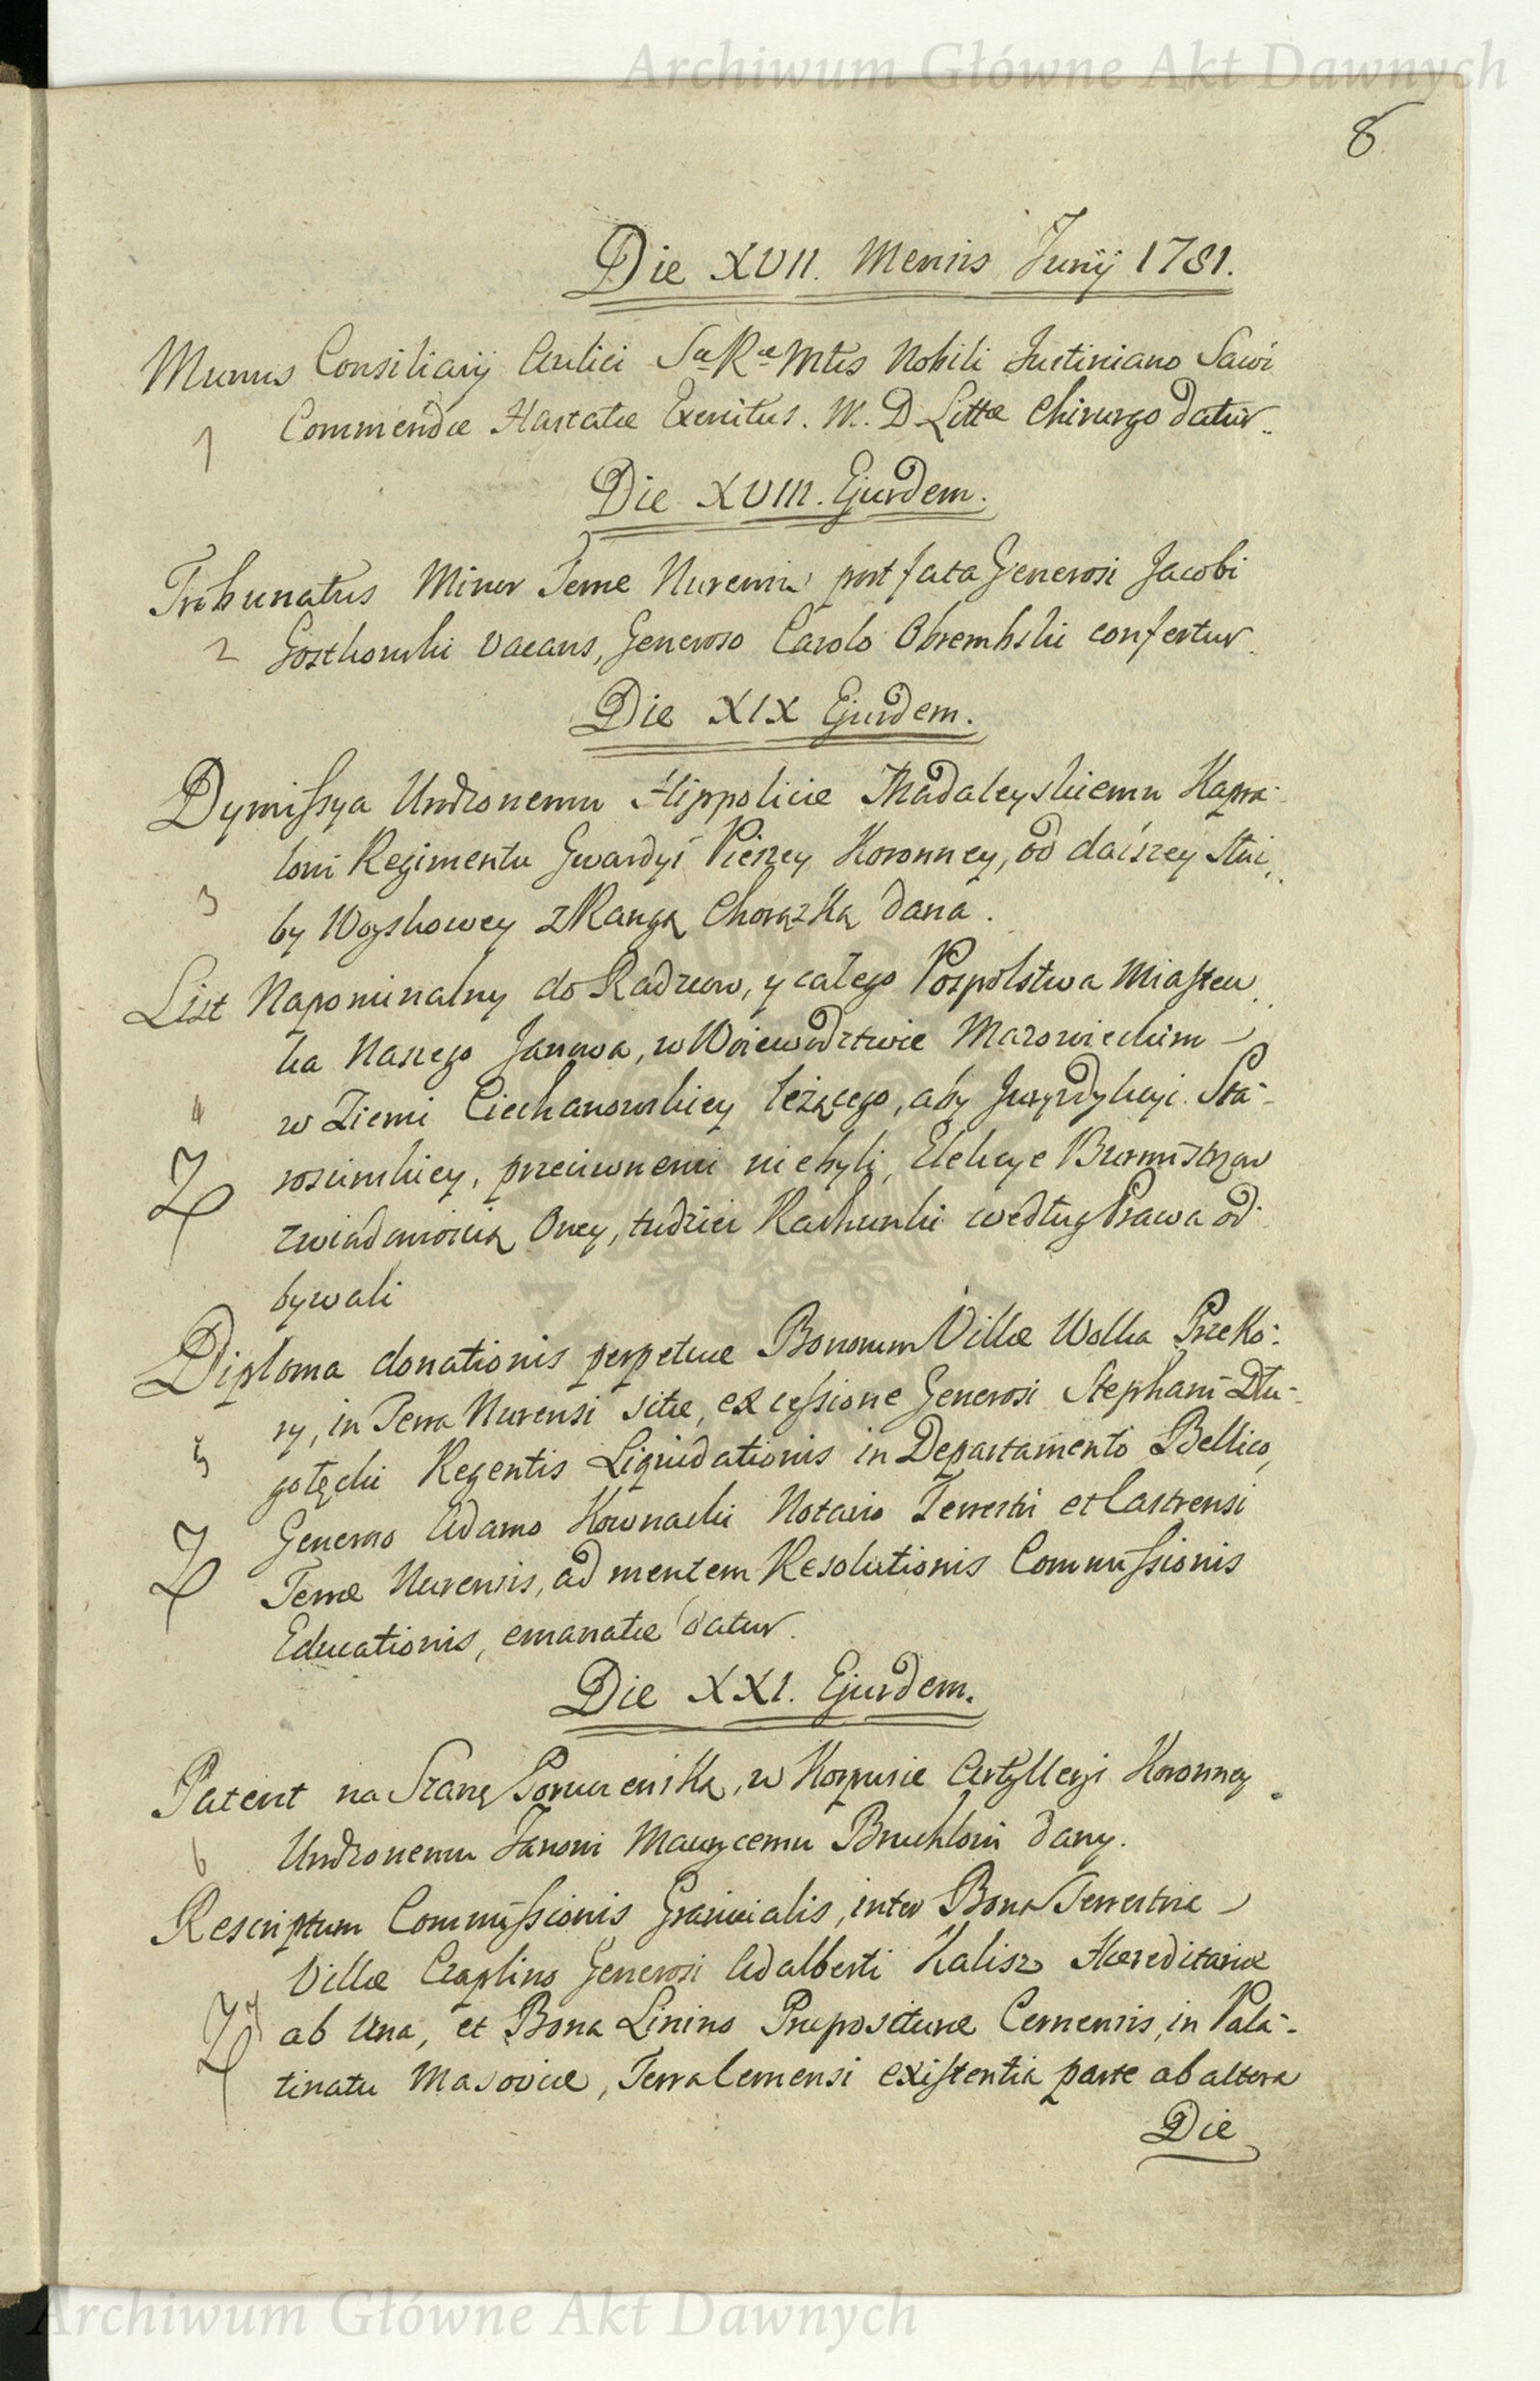 Archiwum Główne Akt Dawnych
8
Die XVII. Mensis Junij 1781.
Munus Consiliarij Aulici Sæ Ræ Mtis Nobili Justiniano Sawi
1 Commendæ Hastatæ Exercitus. M. D Littæ Chirurgo datur.
Die XVIII. Ejusdem.
Tribunatus Minor Terræ Nurensis post fata Generosi Jacobi
2 Gostkowski vacans, Generoso Carolo Obrembski confertur.
Die XIX Ejusdem.
Dymissya Urodzonemu Hippolicie Madaleyskiemu Kapra-
lowi Regimentu Gwardyi Pieszey Koronney, od dalszey Służ-
3 by Woyskowey z Rangą Chorążką dana.
List Napominalny do Radzców, y całego Pospolstwa Miastecz-
ka Naszego Janowa, w Woiewodztwie Mazowieckim
4 w Ziemi Ciechanowskiey leżącego, aby Juryzdykcyi Sta-
rościnskiey, przeciwnemi niebyli, Elekcye Burmistrzow
zwiadomością Oney, tudzież Rachunki według Prawa od-
bywali
Diploma donationis perpetuæ Bonorum Villæ Wolka Przeko-
ry, in Terra Nurensi sitæ, ex cessione Generosi Stephani Dłu-
5 gołęcki Regentis Liquidationis in Departamento Bellico,
Generoso Adamo Kownacki Notario Terrestri et Castrensi
Terræ Nurensis, ad mentem Resolutionis Commissionis
Educationis, emanatæ datur.
Die XXI. Ejusdem.
Patent na Szarżę Poruczniką, w Korpusie Artylleryi Koronney
6 Urodzonemu Janowi Maurycemu Bruchlowi dany.
Rescriptum Commissionis Granicialis, inter Bona Terrestria
Villæ Czaplino Generosi Adalberti Kalisz Hæreditariæ
7 ab Una, et Bona Linino Præposituræ Cernensis, in Pala-
tinatu Masoviæ, Terra Cernensi existentia parte ab altera
Die
Archiwum Główne Akt Dawnych